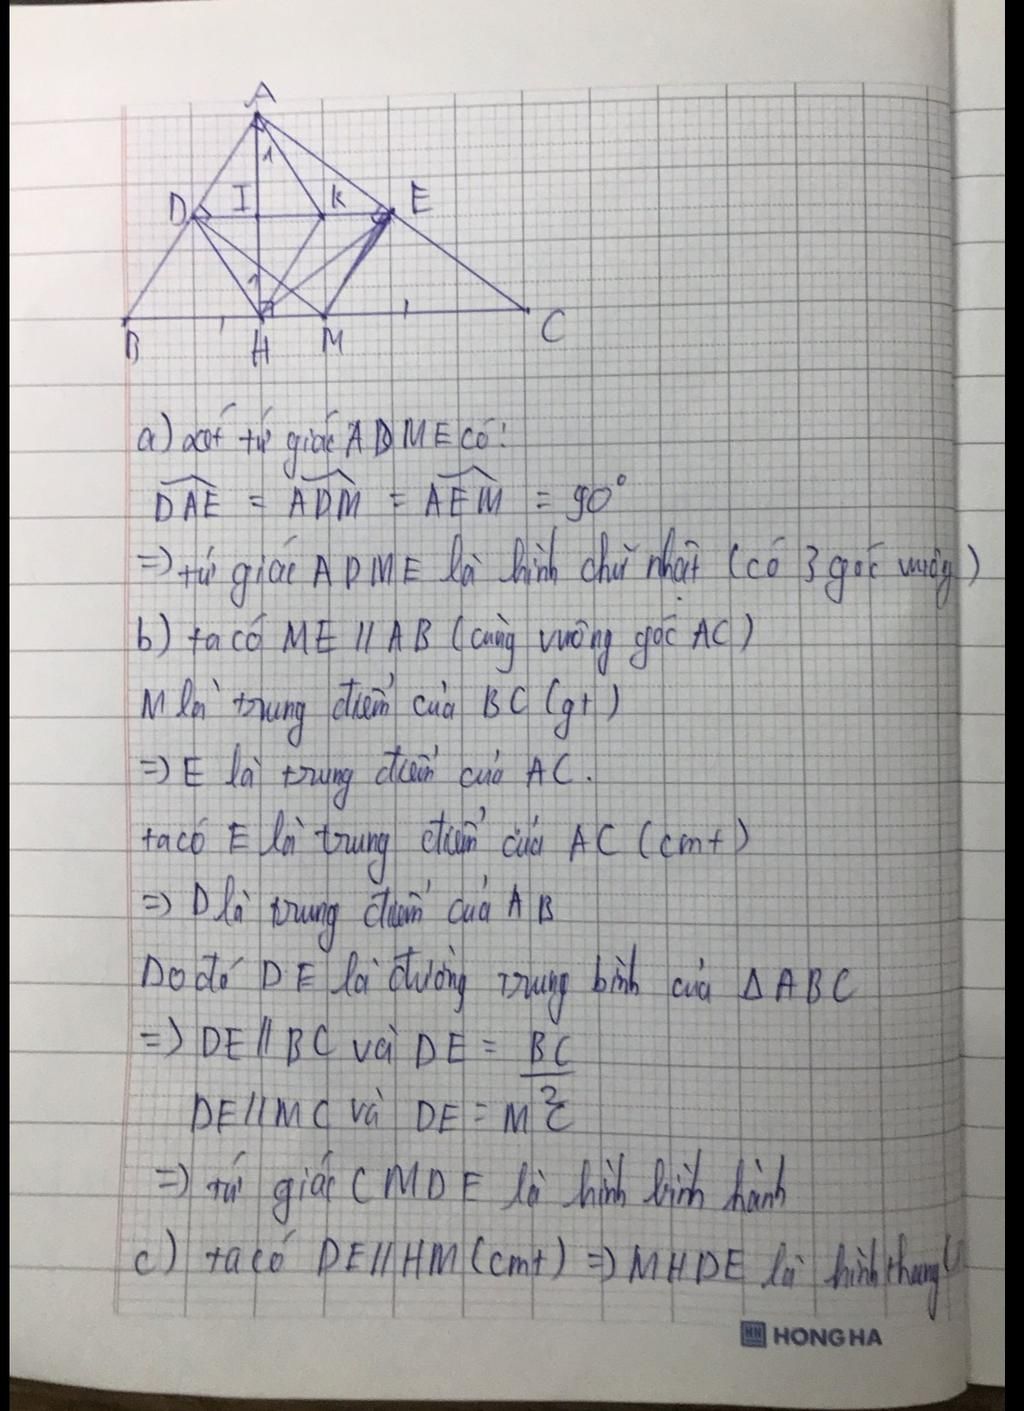 A
1
D
I
K
E
1
B
H
M
C
a) xét tứ giác ADME có:
DAE = ADM = AEM = 90°
=> tứ giác ADME là hình chữ nhật (có 3 góc vuông)
b) ta có ME // AB (cùng vuông góc AC)
M là trung điểm của BC (gt)
=> E là trung điểm của AC.
ta có E là trung điểm của AC (cmt)
=> D là trung điểm của AB
Do đó DE là đường trung bình của ΔABC
=> DE // BC và DE = BC/2
DE // MC và DE = MC
=> tứ giác CMDE là hình bình hành
c) ta có DE // HM (cmt) => MHDE là hình thang (
HN HONG HA